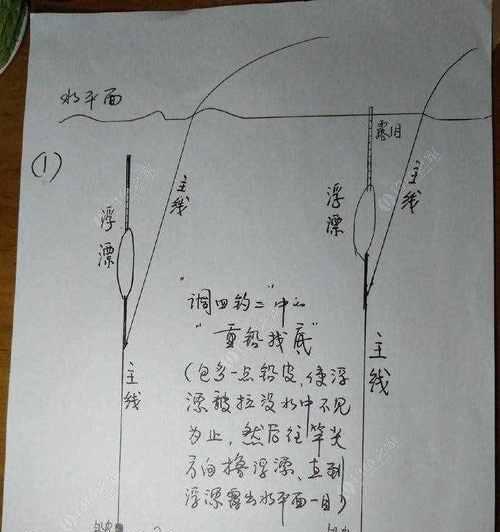 水平面
(1)
浮漂
主线
主线
露目
浮漂
主线
主线
"调四钓二"中的
"重铅找底"
(包多一点铅皮,使浮
漂被拉没水中不见
为止,然后往竿尖
方向撸浮漂,直到
浮漂露出水平面一目)